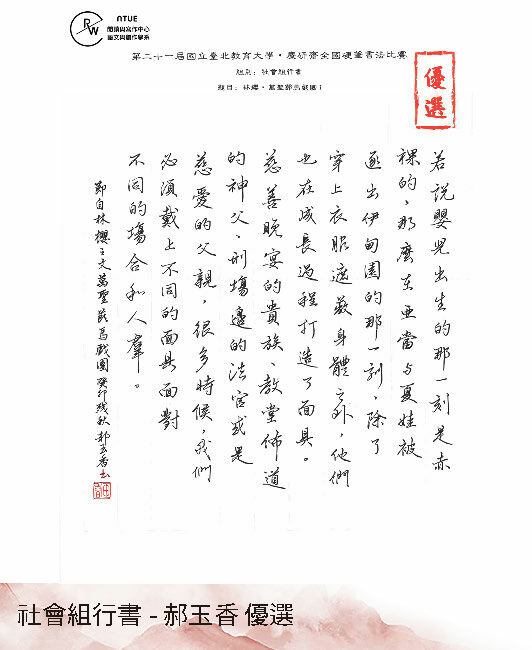 NTUE
RW
閱讀與寫作中心
語文與創作學系
第二十一屆國立臺北教育大學·慶研齋全國硬筆書法比賽
組別：社會組行書
優選
若說嬰兒出生的那一刻是赤
裸的，那麼在亞當与夏娃被
逐出伊甸園的那一刻，除了
穿上衣服遮蔽身體之外，他們
也在成長過程打造了面具。
慈善晚宴的貴族、教堂佈道
的神父、刑場邊的法官或是
慈愛的父親，很多時候，我們
必須戴上不同的面具面對
不同的場合和人羣。
鄭自林櫻之文萬聖節馬戲團 癸卯残秋郝玉香書
社會組行書 - 郝玉香 優選